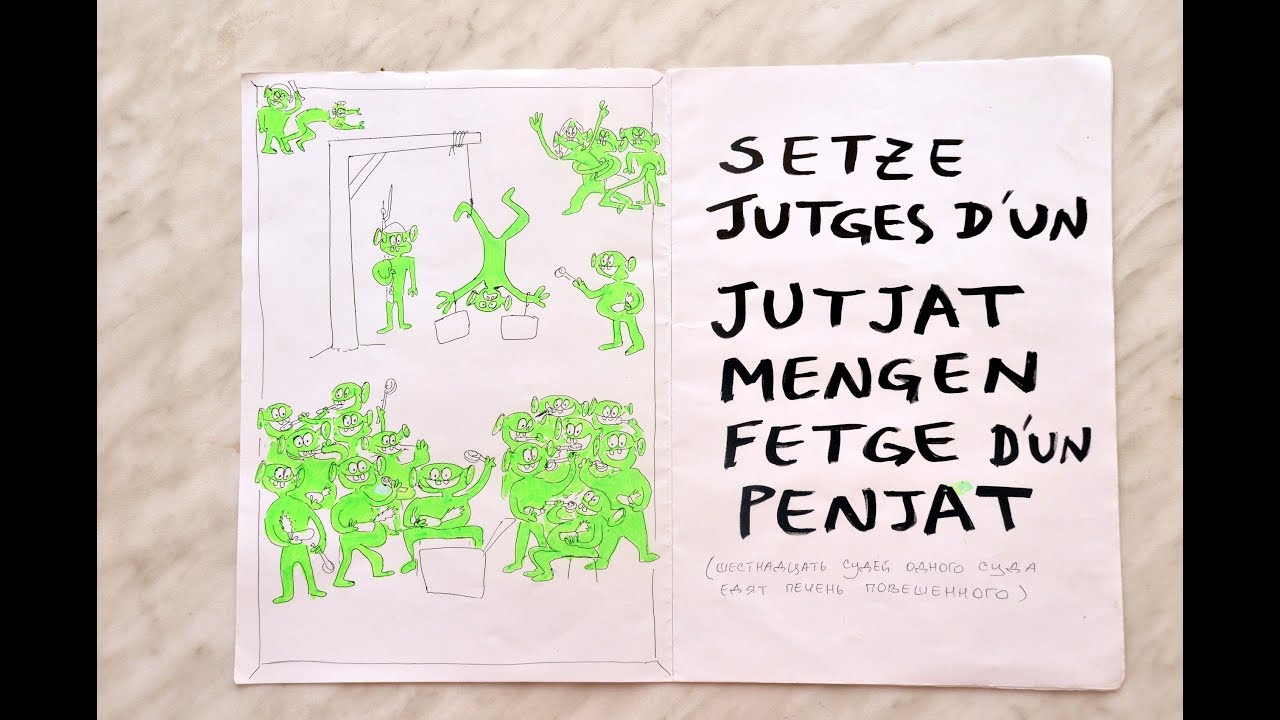 SETZE
JUTGES D'UN
JUTJAT
MENGEN
FETGE D'UN
PENJAT
(ШЕСТНАДЦАТЬ СУДЕЙ ОДНОГО СУДА
ЕДЯТ ПЕЧЕНЬ ПОВЕШЕННОГО)